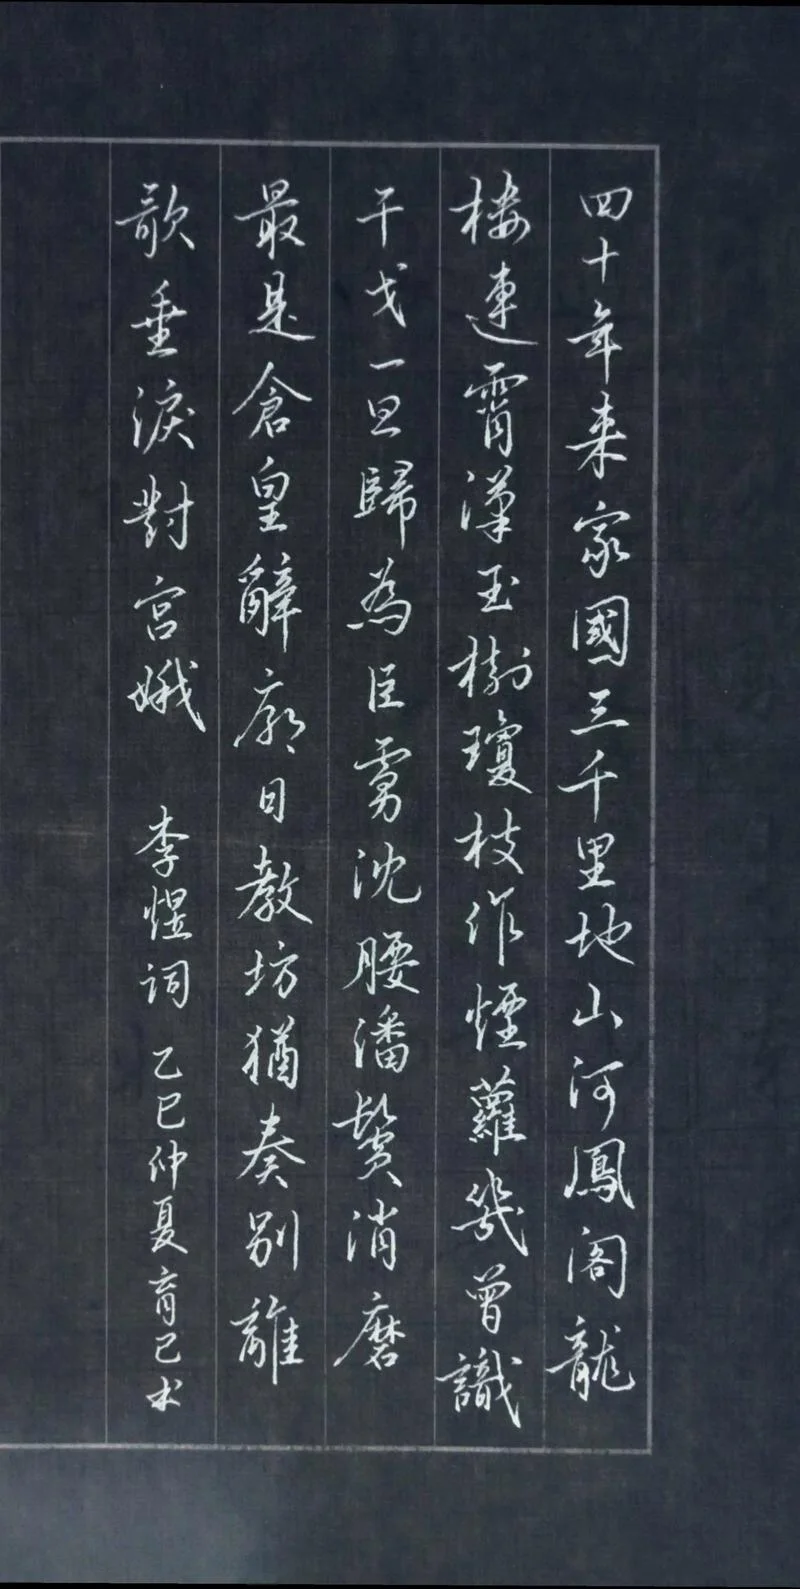 四十年来家國三千里地山河鳳阁龍
楼連霄漢玉樹瓊枝作煙蘿幾曾識
干戈一旦歸為臣虜沈腰潘鬢消磨
最是倉皇辭廟日教坊猶奏别離
歌垂淚對宫娥 李煜詞 乙巳仲夏育已